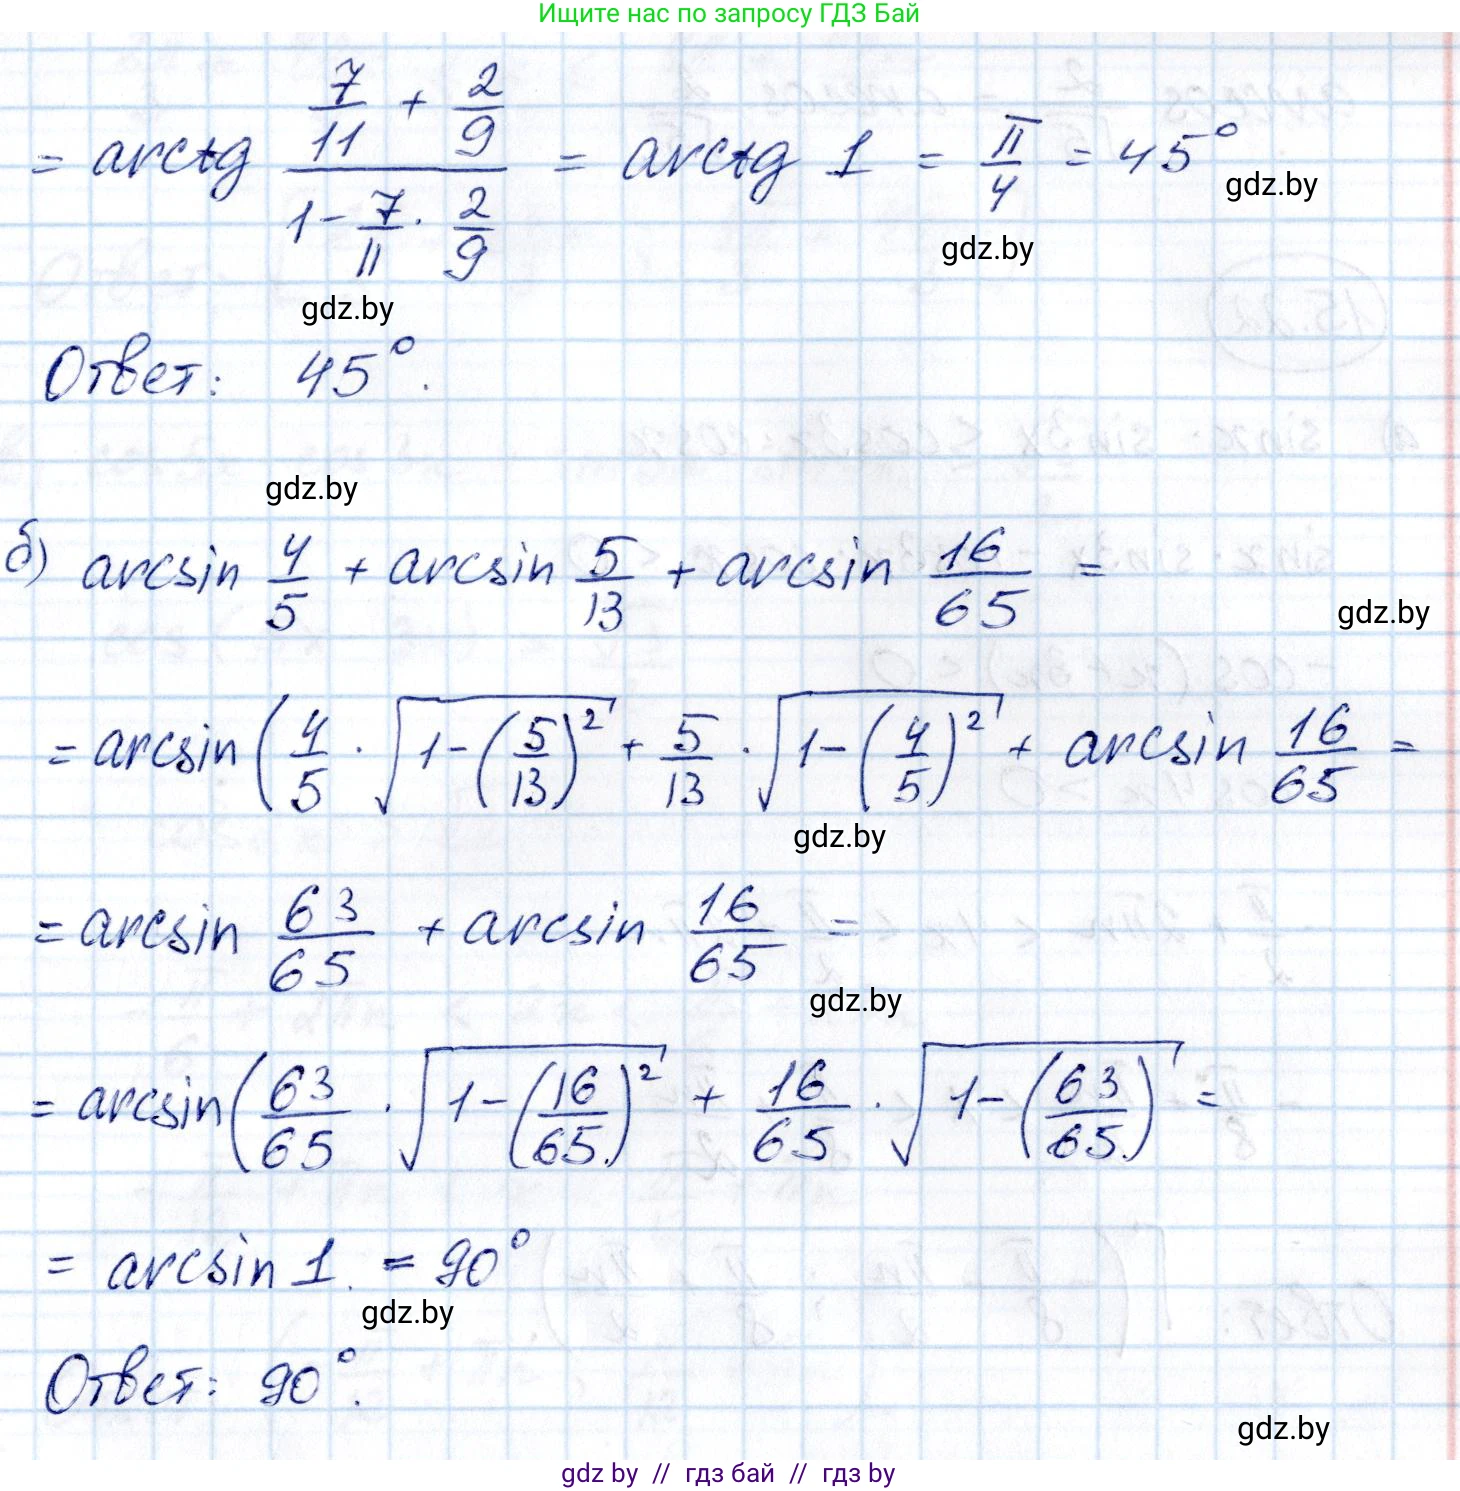 Ищите нас по запросу ГДЗ Бай
= arctg (7/11 + 2/9)/(1 - 7/11 · 2/9) = arctg 1 = π/4 = 45°
gdz.by
gdz.by
gdz.by
Ответ: 45°.
gdz.by
б) arcsin 4/5 + arcsin 5/13 + arcsin 16/65 =
gdz.by
= arcsin (4/5 · √(1-(5/13)²) + 5/13 · √(1-(4/5)²) + arcsin 16/65 =
gdz.by
= arcsin 63/65 + arcsin 16/65 =
gdz.by
= arcsin (63/65 · √(1-(16/65)²) + 16/65 · √(1-(63/65)) =
= arcsin 1. = 90°
gdz.by
Ответ: 90°.
gdz.by
gdz by // гдз бай // гдз by